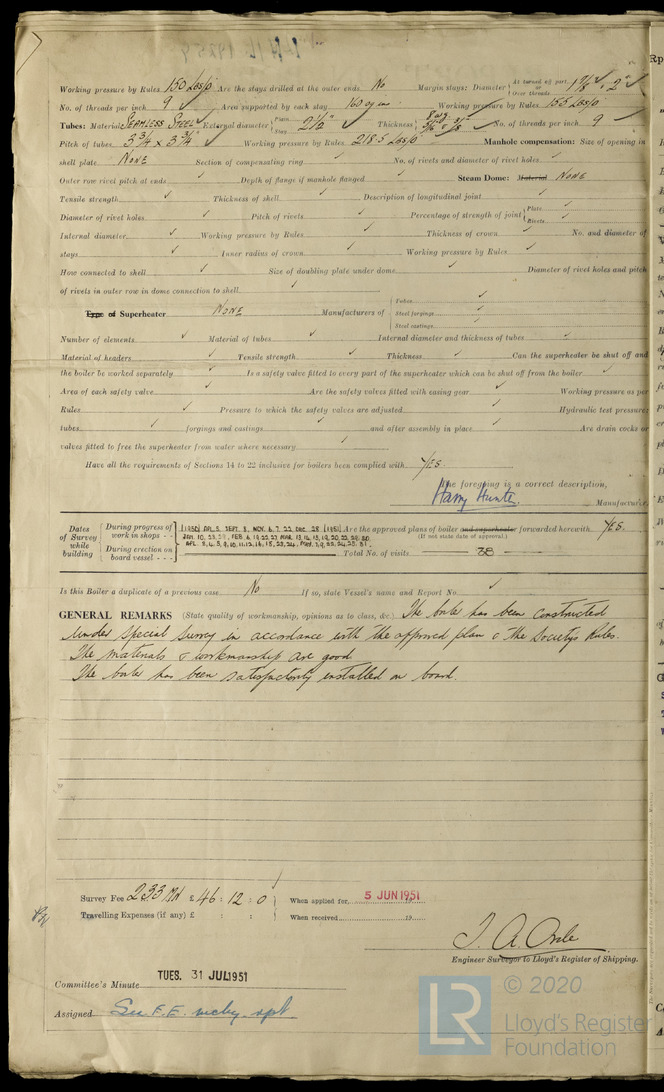 Working pressure by Rules 150 Lbs/□" Are the stays drilled at the outer ends No Margin stays: Diameter { At turned off part, or Over threads 1 7/8" ✓ 2" ✓
No. of threads per inch 9 ✓ Area supported by each stay 160 Working pressure by Rules 155 Lbs/□"
Tubes: Material SEAMLESS STEEL ✓ External diameter { Plain Stay 2 1/2" ✓ Thickness { 8 WG 5/16" & 3/8" ✓ No. of threads per inch 9 ✓
Pitch of tubes 3 3/4" × 3 3/4" ✓ Working pressure by Rules 218.5 Lbs/□" Manhole compensation: Size of opening in
shell plate NONE Section of compensating ring ✓ No. of rivets and diameter of rivet holes ✓
Outer row rivet pitch at ends ✓ Depth of flange if manhole flanged ✓ Steam Dome: Material NONE
Tensile strength ✓ Thickness of shell ✓ Description of longitudinal joint ✓
Diameter of rivet holes ✓ Pitch of rivets ✓ Percentage of strength of joint { Plate ✓ Rivets ✓
Internal diameter ✓ Working pressure by Rules ✓ Thickness of crown ✓ No. and diameter of
stays ✓ Inner radius of crown ✓ Working pressure by Rules ✓
How connected to shell ✓ Size of doubling plate under dome ✓ Diameter of rivet holes and pitch
of rivets in outer row in dome connection to shell ✓
Type of Superheater NONE Manufacturers of { Tubes ✓ Steel forgings ✓ Steel castings ✓
Number of elements ✓ Material of tubes ✓ Internal diameter and thickness of tubes ✓
Material of headers ✓ Tensile strength ✓ Thickness ✓ Can the superheater be shut off and
the boiler be worked separately ✓ Is a safety valve fitted to every part of the superheater which can be shut off from the boiler ✓
Area of each safety valve ✓ Are the safety valves fitted with easing gear ✓ Working pressure as per
Rules ✓ Pressure to which the safety valves are adjusted ✓ Hydraulic test pressure:
tubes ✓ forgings and castings ✓ and after assembly in place ✓ Are drain cocks or
valves fitted to free the superheater from water where necessary ✓
Have all the requirements of Sections 14 to 22 inclusive for boilers been complied with YES.
The foregoing is a correct description,
Harry Hunter. Manufacturer.
Dates of Survey while building { During progress of work in shops - - { (1950) APL. 3, SEPT. 8, NOV. 6, 7, 22, DEC. 28 (1951) Are the approved plans of boiler and superheater forwarded herewith YES.
(If not state date of approval.)
During erection on board vessel - - - Total No. of visits 38
Is this Boiler a duplicate of a previous case No If so, state Vessel's name and Report No. ✓
GENERAL REMARKS (State quality of workmanship, opinions as to class, &c.) The boiler has been constructed
under special survey in accordance with the approved plan & the Society's Rules.
The materials & workmanship are good.
The boiler has been satisfactorily installed on board.
Survey Fee £46 : 12 : 0 When applied for, 5 JUN 1951
Travelling Expenses (if any) £ : : When received, 19
J. A. Orde
Engineer Surveyor to Lloyd's Register of Shipping.
Committee's Minute TUES. 31 JUL 1951
Assigned See F.E. mchy. rpt.
© 2020
LR Lloyd's Register
Foundation